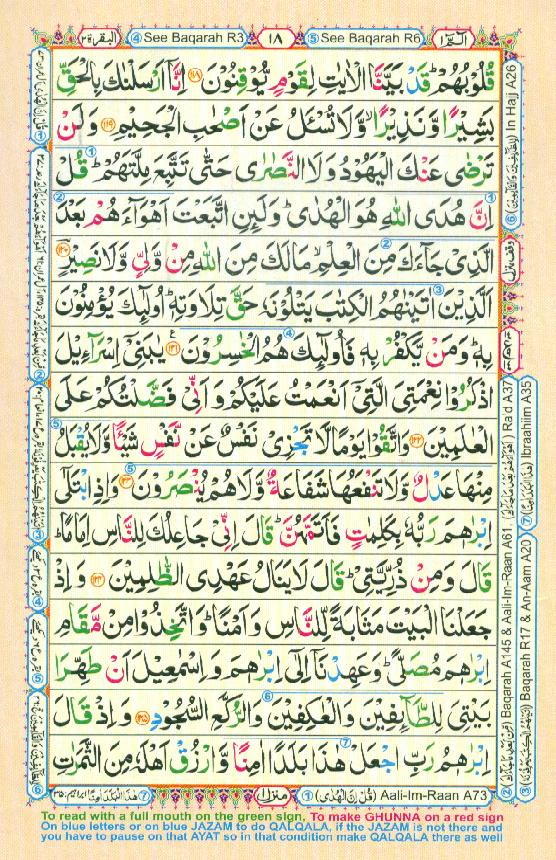 البقرة ٢ ④ See Baqarah R3 ١٨ ⑤ See Baqarah R6 الٓمّٓ ١
قُلُوْبُهُمْ ؕ قَدْ بَيَّنَّا الْاٰيٰتِ لِقَوْمٍ يُّوْقِنُوْنَ ﴿۱۱۸﴾ اِنَّاۤ اَرْسَلْنٰكَ بِالْحَقِّ
بَشِيْرًا وَّ نَذِيْرًا ۙ وَّلَا تُسْـَٔلُ عَنْ اَصْحٰبِ الْجَحِيْمِ ﴿۱۱۹﴾ وَلَنْ
تَرْضٰى عَنْكَ الْيَهُوْدُ وَلَا النَّصٰرٰى حَتّٰى تَتَّبِعَ مِلَّتَهُمْ ؕ قُلْ
اِنَّ هُدَى اللّٰهِ هُوَ الْهُدٰى ؕ وَلَئِنِ اتَّبَعْتَ اَهْوَآءَهُمْ بَعْدَ
الَّذِيْ جَآءَكَ مِنَ الْعِلْمِ ۙ مَا لَكَ مِنَ اللّٰهِ مِنْ وَّلِيٍّ وَّلَا نَصِيْرٍ ﴿۱۲۰﴾
اَلَّذِيْنَ اٰتَيْنٰهُمُ الْكِتٰبَ يَتْلُوْنَهٗ حَقَّ تِلَاوَتِهٖ ؕ اُولٰٓئِكَ يُؤْمِنُوْنَ
بِهٖ ؕ وَمَنْ يَّكْفُرْ بِهٖ فَاُولٰٓئِكَ هُمُ الْخٰسِرُوْنَ ﴿۱۲۱﴾ يٰبَنِيْۤ اِسْرَآءِيْلَ
اذْكُرُوْا نِعْمَتِيَ الَّتِيْۤ اَنْعَمْتُ عَلَيْكُمْ وَ اَنِّيْ فَضَّلْتُكُمْ عَلَى
الْعٰلَمِيْنَ ﴿۱۲۲﴾ وَاتَّقُوْا يَوْمًا لَّا تَجْزِيْ نَفْسٌ عَنْ نَّفْسٍ شَيْـًٔا وَّلَا يُقْبَلُ
مِنْهَا عَدْلٌ وَّلَا تَنْفَعُهَا شَفَاعَةٌ وَّلَا هُمْ يُنْصَرُوْنَ ﴿۱۲۳﴾ وَاِذِ ابْتَلٰٓى
اِبْرٰهٖمَ رَبُّهٗ بِكَلِمٰتٍ فَاَتَمَّهُنَّ ؕ قَالَ اِنِّيْ جَاعِلُكَ لِلنَّاسِ اِمَامًا ؕ
قَالَ وَمِنْ ذُرِّيَّتِيْ ؕ قَالَ لَا يَنَالُ عَهْدِي الظّٰلِمِيْنَ ﴿۱۲۴﴾ وَاِذْ
جَعَلْنَا الْبَيْتَ مَثَابَةً لِّلنَّاسِ وَاَمْنًا ؕ وَاتَّخِذُوْا مِنْ مَّقَامِ
اِبْرٰهٖمَ مُصَلًّى ؕ وَعَهِدْنَاۤ اِلٰٓى اِبْرٰهٖمَ وَاِسْمٰعِيْلَ اَنْ طَهِّرَا
بَيْتِيَ لِلطَّآئِفِيْنَ وَالْعٰكِفِيْنَ وَالرُّكَّعِ السُّجُوْدِ ﴿۱۲۵﴾ وَاِذْ قَالَ
اِبْرٰهٖمُ رَبِّ اجْعَلْ هٰذَا بَلَدًا اٰمِنًا وَّارْزُقْ اَهْلَهٗ مِنَ الثَّمَرٰتِ
⑦ هٰذَا الْبَلَدَ اٰمِنًا ابراهيم ٣٥ منزل ١ ① (قُلْ اِنَّ الْهُدٰى) Aali-Im-Raan A73
⑥ (لِلطَّآئِفِيْنَ وَالْقَآئِمِيْنَ) In Hajj A26
② (مِنْ بَعْدِ مَا جَآءَكَ) Baqarah A145 & Aali-Im-Raan A61, (اَهْوَآءَهُمْ بَعْدَ مَا جَآءَكَ) Ra'd A37
③ Baqarah R17 & An-Aam A20 ⑦ (هٰذَا الْبَلَدَ اٰمِنًا) Ibraahiim A35
To read with a full mouth on the green sign, To make GHUNNA on a red sign
On blue letters or on blue JAZAM to do QALQALA, if the JAZAM is not there and
you have to pause on that AYAT so in that condition make QALQALA there as well